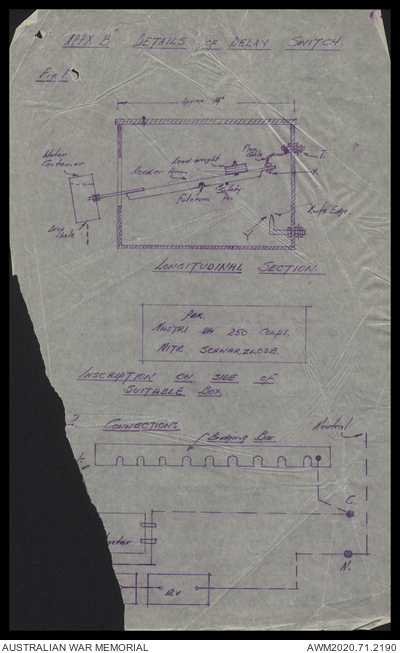 "APPX B" DETAILS OF DELAY SWITCH.
Fig 1.
Approx. 14"
Water
Container
Lead weight
Rocker Arm
Fulcrum
Safety
Pin
T.
X
Knife Edge
Y
Drop
Hole
LONGITUDINAL SECTION.
PER.
NASTRI DA 250 COLPI.
MITR SCHWARZLOSE.
INSCRIPTION ON SIDE OF
SUITABLE BOX.
2 CONNECTIONS
Bridging Bar
Neutral
C.
N.
AUSTRALIAN WAR MEMORIAL
AWM2020.71.2190